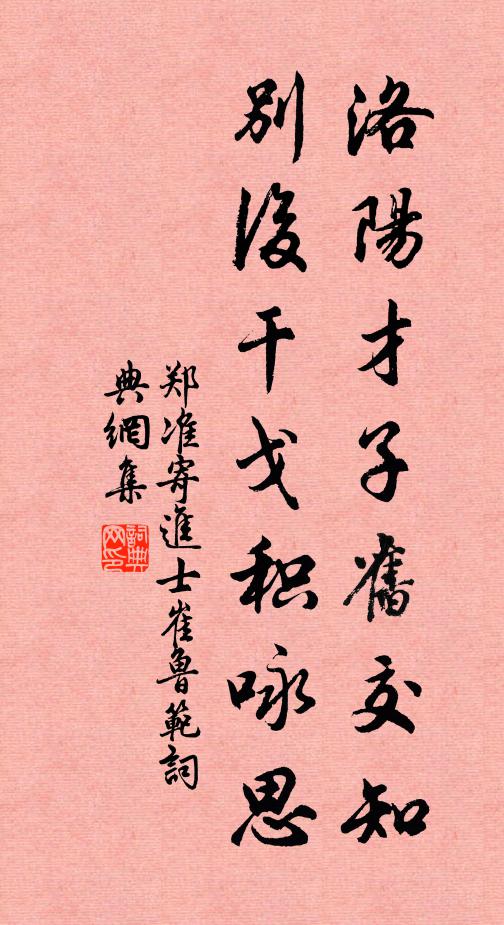 洛陽才子舊交知
別後干戈积咏思
郑准寄進士崔魯範詞
典網集
詞典网印